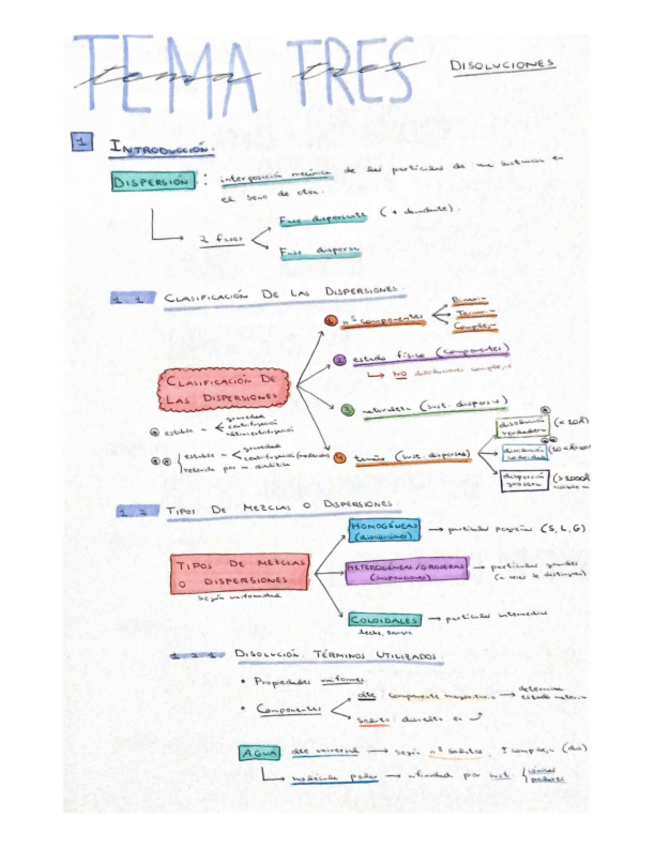 TEMA TRES
tema tres
DISOLUCIONES
1 INTRODUCCIÓN.
DISPERSIÓN : interposición mecánica de las partículas de una sustancia en
el seno de otra.
2 fases
Fase dispersante (+ abundante).
Fase dispersa
1.1 CLASIFICACIÓN DE LAS DISPERSIONES.
CLASIFICACIÓN DE
LAS DISPERSIONES
1 nº componentes
Binaria
Ternaria
Compleja
2 estado físico (componentes)
NO disoluciones
3 naturaleza (sust. dispersa)
4 tamaño (sust. dispersa)
disolución
verdadera
disolución
coloidal
dispersión
grosera
estable =
gravedad
centrifugación
ultracentrifugación
estable =
gravedad
centrifugación (moderada)
retenida por m. dialítica
1.2 TIPOS DE MEZCLAS O DISPERSIONES
TIPOS DE MEZCLAS
O DISPERSIONES
según uniformidad
HOMOGÉNEAS
(disoluciones)
partículas pequeñas (S, L, G)
HETEROGÉNEAS/GROSERAS
(suspensiones)
partículas grandes
(a veces se distinguen)
COLOIDALES
partículas intermedias
leche, sangre
1.2.1 DISOLUCIÓN. TÉRMINOS UTILIZADOS.
• Propiedades uniformes.
• Componentes
dte componente mayoritario
determina
estado materia
soluto: disuelto en
AGUA dte universal según nº solutos, ↑ compleja (dis)
molécula polar afinidad por sust. iónicas
polares